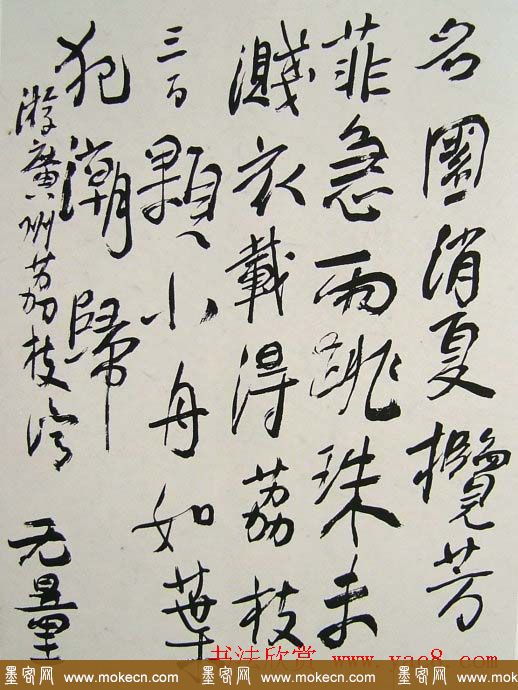 名園消夏攬芳
菲急雨跳珠未
濺衣載得荔枝
三百顆小舟如葉
犯潮歸
游廣州荔枝湾 无量
书法欣赏 www.yac8.com
墨客网 www.mokecn.com 墨客网 www.mokecn.com 墨客网 www.mokecn.com